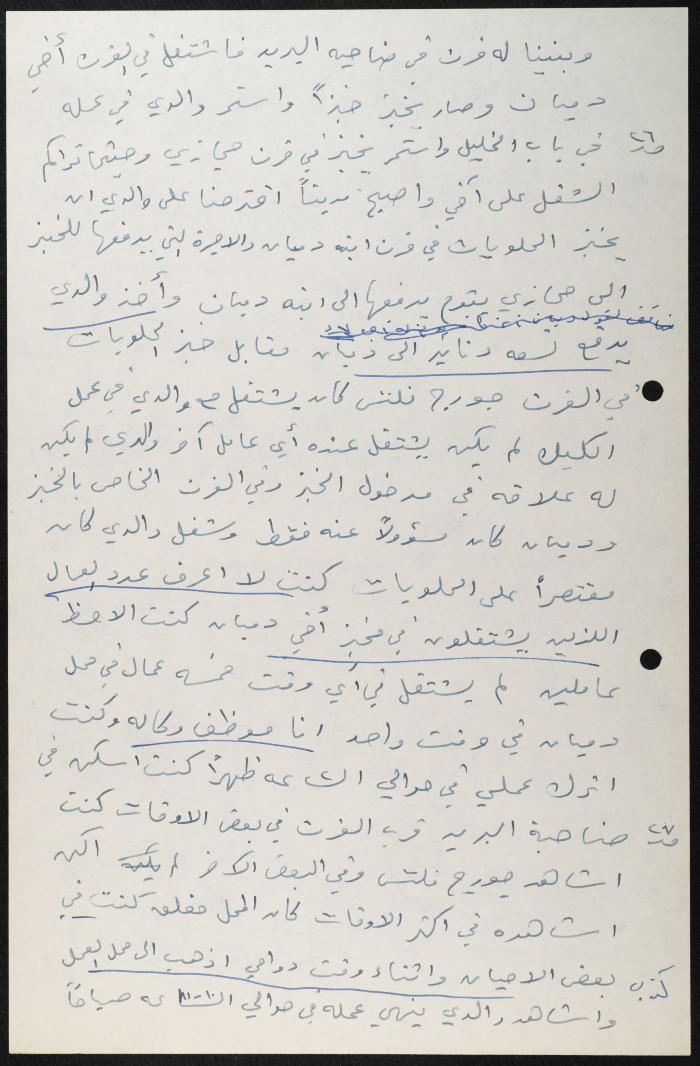 وبنينا له فرن في ضاحيه البريد فاشتغل في الفرن أخي
دميان وصار يخبز خبزاً واستمر والدي في عمله
في باب الخليل واستمر يخبز في فرن حجازي وحينما تراكم
الشغل على أخي واصبح مديناً اقترحنا على والدي ان
يخبز الحلويات في فرن ابنه دميان والاجرة التي يدفعها للخبز
الى حجازي يقوم بدفعها الى ابنه دميان وأخذ والدي
يدفع تسعه دنانير الى دميان مقابل خبز الحلويات
في الفرن جورج فلتس كان يشتغل مع والدي في عمل
الكليك لم يكن يشتغل عنده أي عامل آخر والدي لم يكن
له علاقه في مدخول الخبز وفي الفرن الخاص بالخبز
ودميان كان مسؤولاً عنه فقط وشغل والدي كان
مقتصراً على الحلويات كنت لا اعرف عدد العمال
اللذين يشتغلون في مخبز أخي دميان كنت الاحظ
عاملين لم يشتغل في أي وقت خمسه عمال في محل
دميان في وقت واحد انا موظف وكاله وكنت
اترك عملي في حوالي الساعه ظهراً كنت اسكن في
ضاحية البريد قرب الفرن في بعض الاوقات كنت
اشاهد جورج فلتس وفي البعض الاخر لم اكن
اشاهده في اكثر الاوقات كان المحل مغلق كنت في
بعض الاحيان واثناء وقت دوامي اذهب الى محل العمل
واشاهد والدي ينهي عمله في حوالي الساعه ١٠-١١ صباحاً